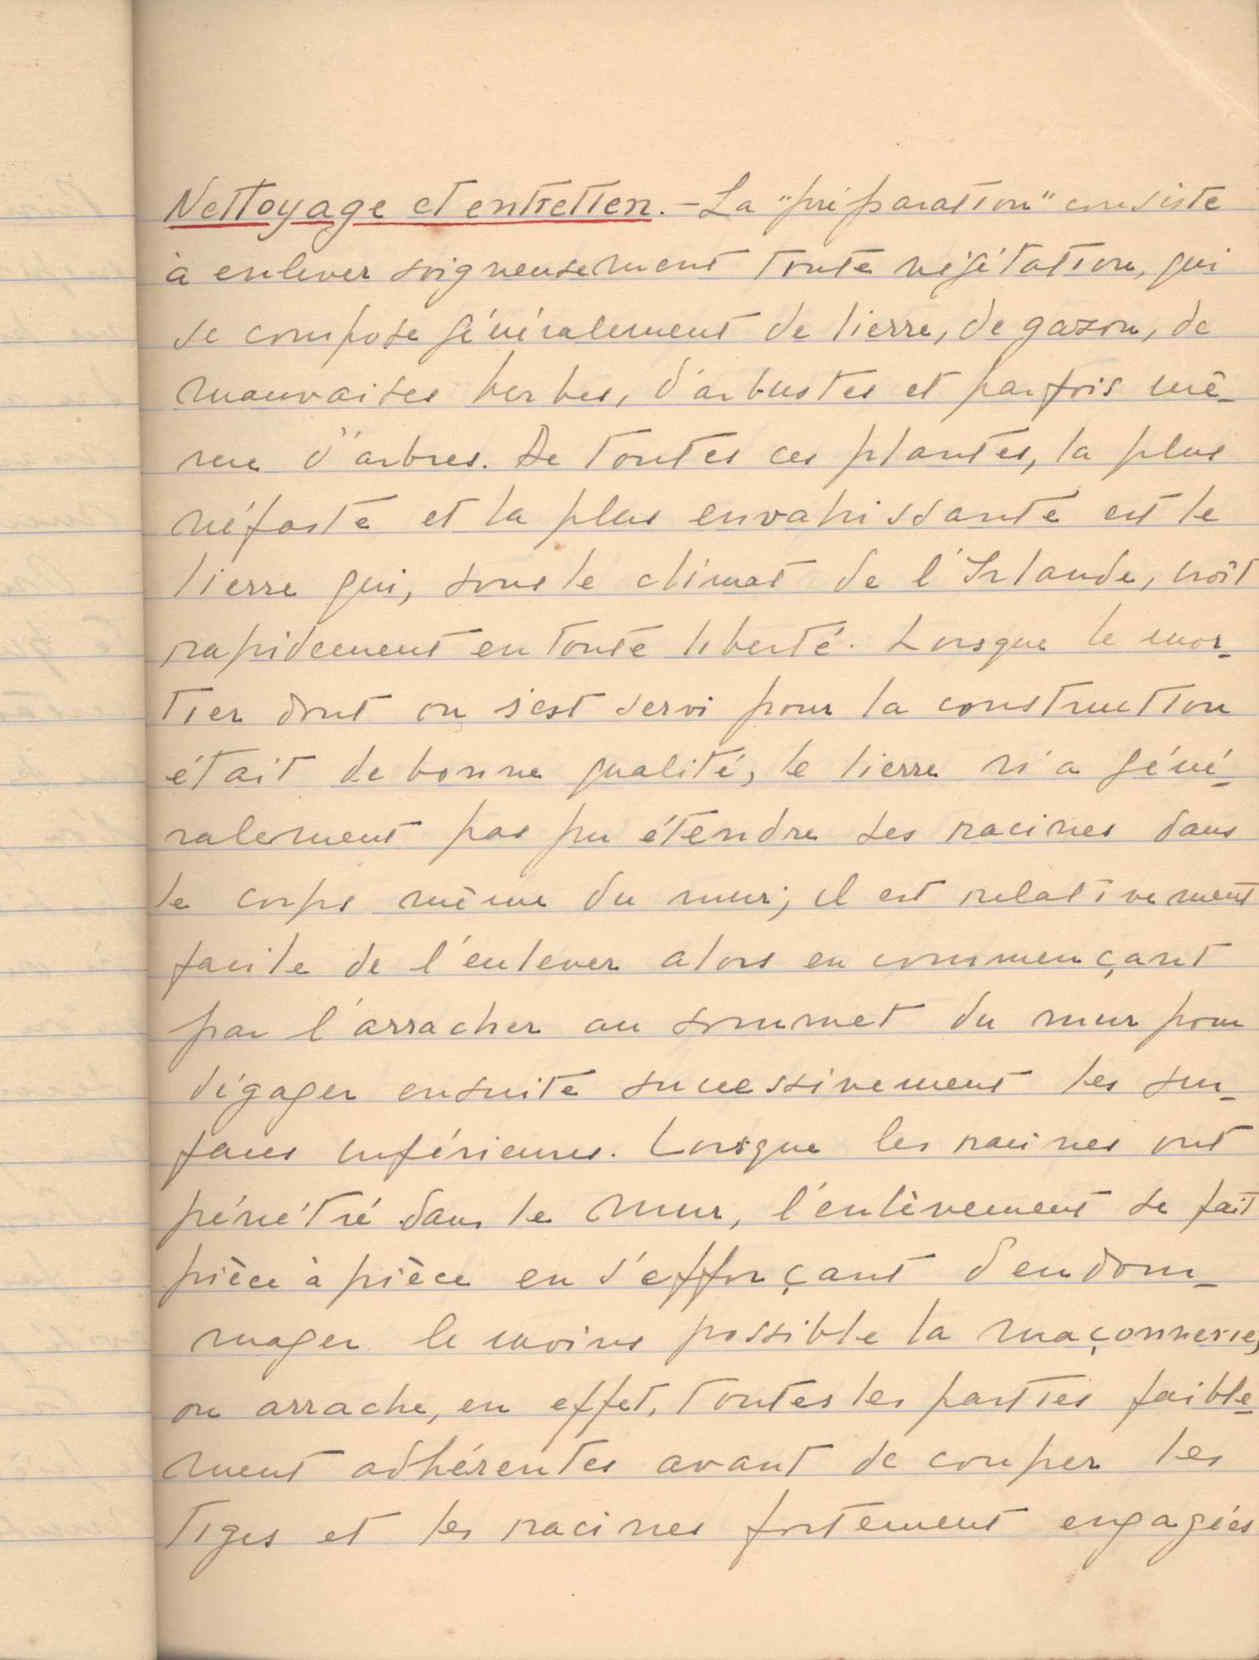 Nettoyage et entretien. — La "préparation" consiste
à enlever soigneusement toute végétation, qui
se compose généralement de lierre, de gazon, de
mauvaises herbes, d'arbustes et parfois mê-
me d'arbres. De toutes ces plantes, la plus
néfaste et la plus envahissante est le
lierre qui, sous le climat de l'Irlande, croît
rapidement en toute liberté. Lorsque le mor-
tier dont on s'est servi pour la construction
était de bonne qualité, le lierre n'a géné-
ralement pas pu étendre ses racines dans
le corps même du mur; il est relativement
facile de l'enlever alors en commençant
par l'arracher au sommet du mur pour
dégager ensuite successivement les sur-
faces inférieures. Lorsque les racines ont
pénétré dans le mur, l'enlèvement se fait
pièce à pièce en s'efforçant d'endom-
mager le moins possible la maçonnerie,
on arrache, en effet, toutes les parties faible-
ment adhérentes avant de couper les
tiges et les racines fortement engagées